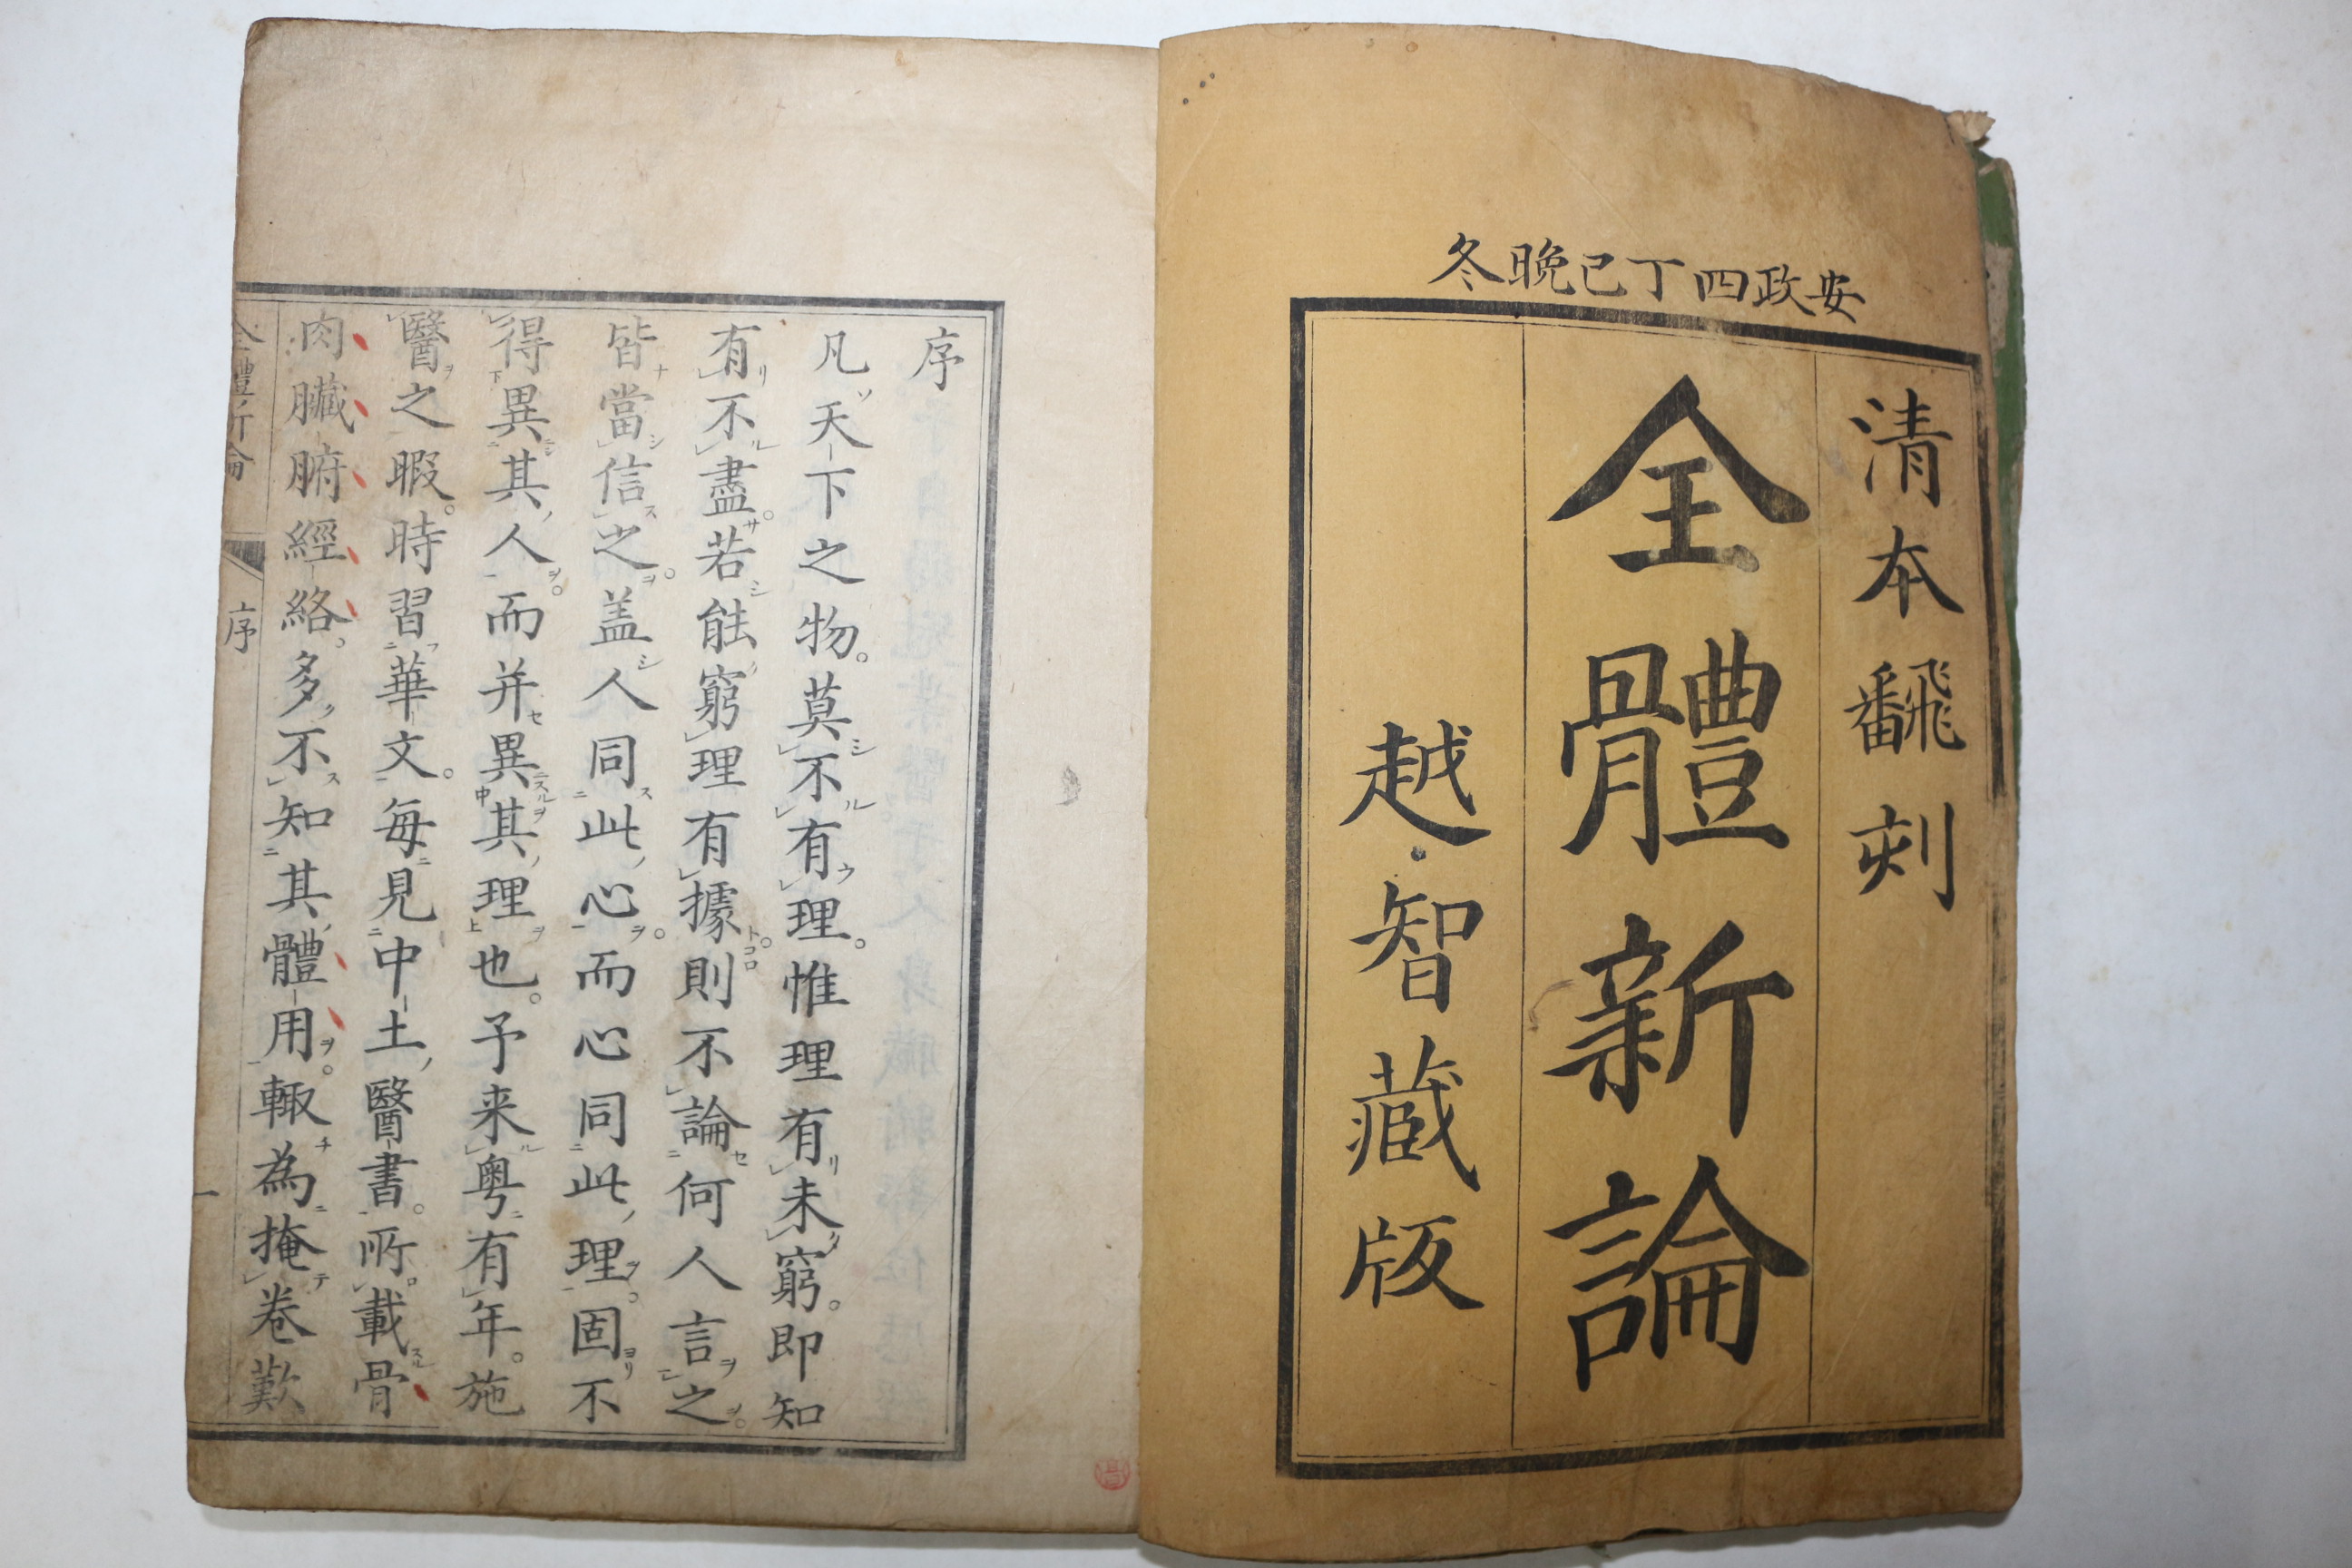 安政四丁巳晩冬
清本翻刻
全體新論
越智藏版
序
凡天下之物。莫不有理。惟理有未窮。即知
有不盡。若能窮理有據。則不論何人言之。
皆當信之。盖人同此心。而心同此理。固不
得異其人。而并異其理也。予来粤有年。施
醫之暇。時習華文。每見中土醫書。所載骨
肉臟腑經絡。多不知其體用。輙為掩卷歎
全體新論
序
一